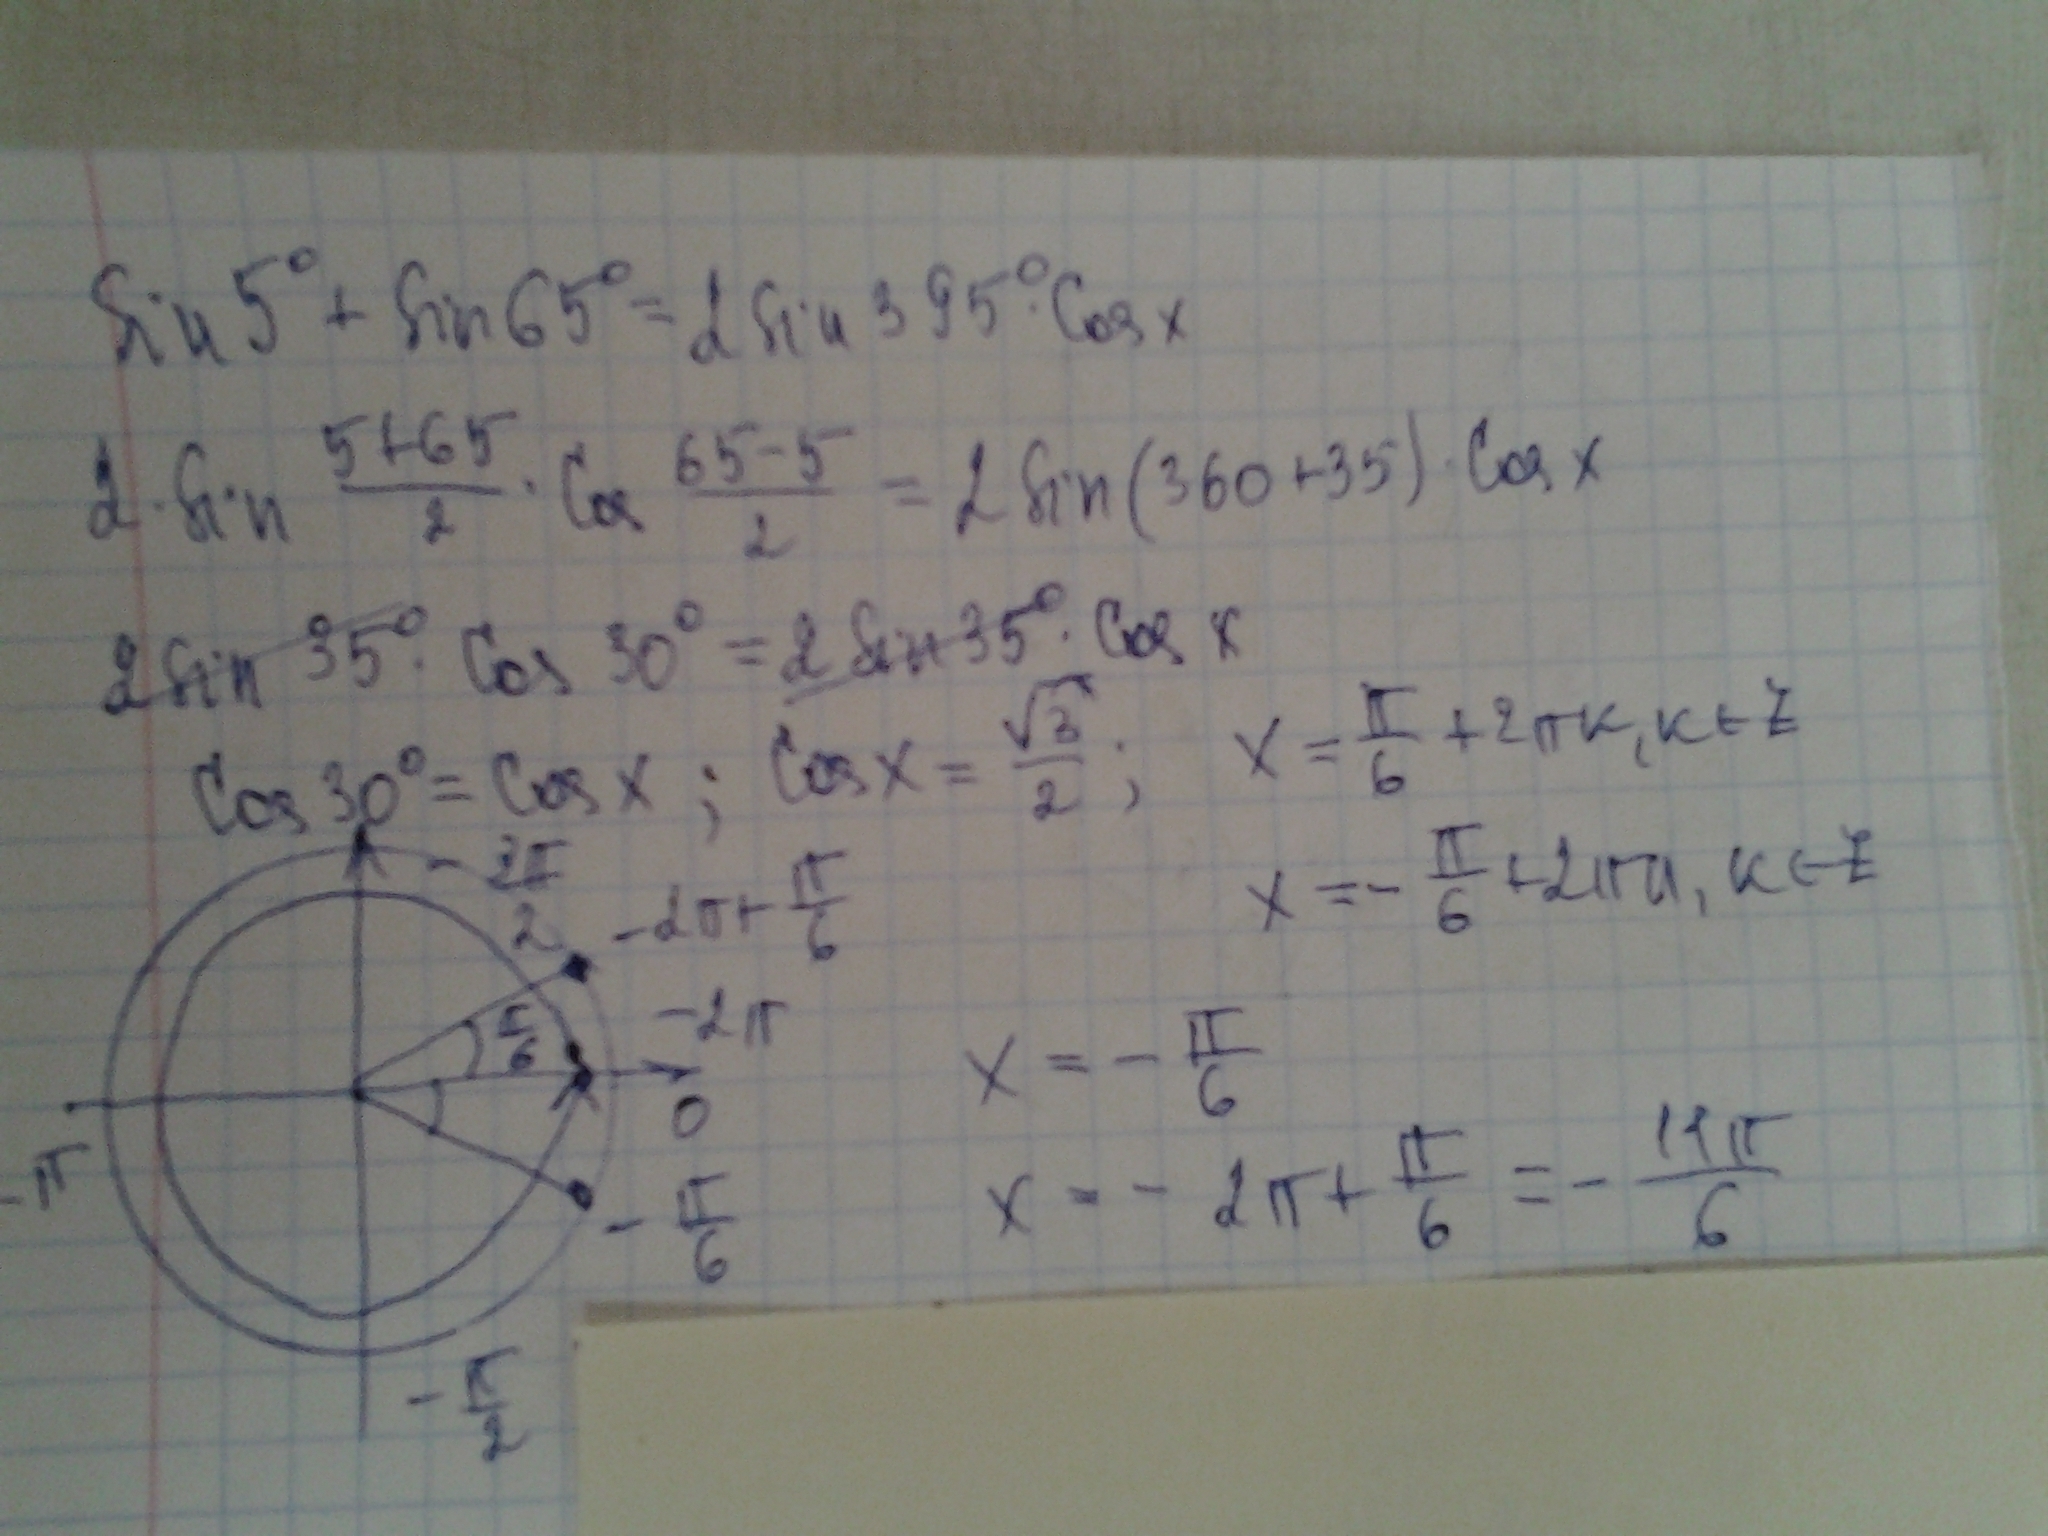 sin 5° + sin 65° = 2 sin 395° · cos x
2 · sin (5+65)/2 · cos (65-5)/2 = 2 sin(360+35) · cos x
2 sin 35° · cos 30° = 2 sin 35° · cos x
cos 30° = cos x ; cos x = √3/2 ; x = π/6 + 2πк, к ∈ Z
x = - π/6 + 2πк, к ∈ Z
- 3π/2
-2π + π/6
π/6
-2π
0
x = - π/6
-π
- π/6
x = - 2π + π/6 = - 11π/6
- π/2